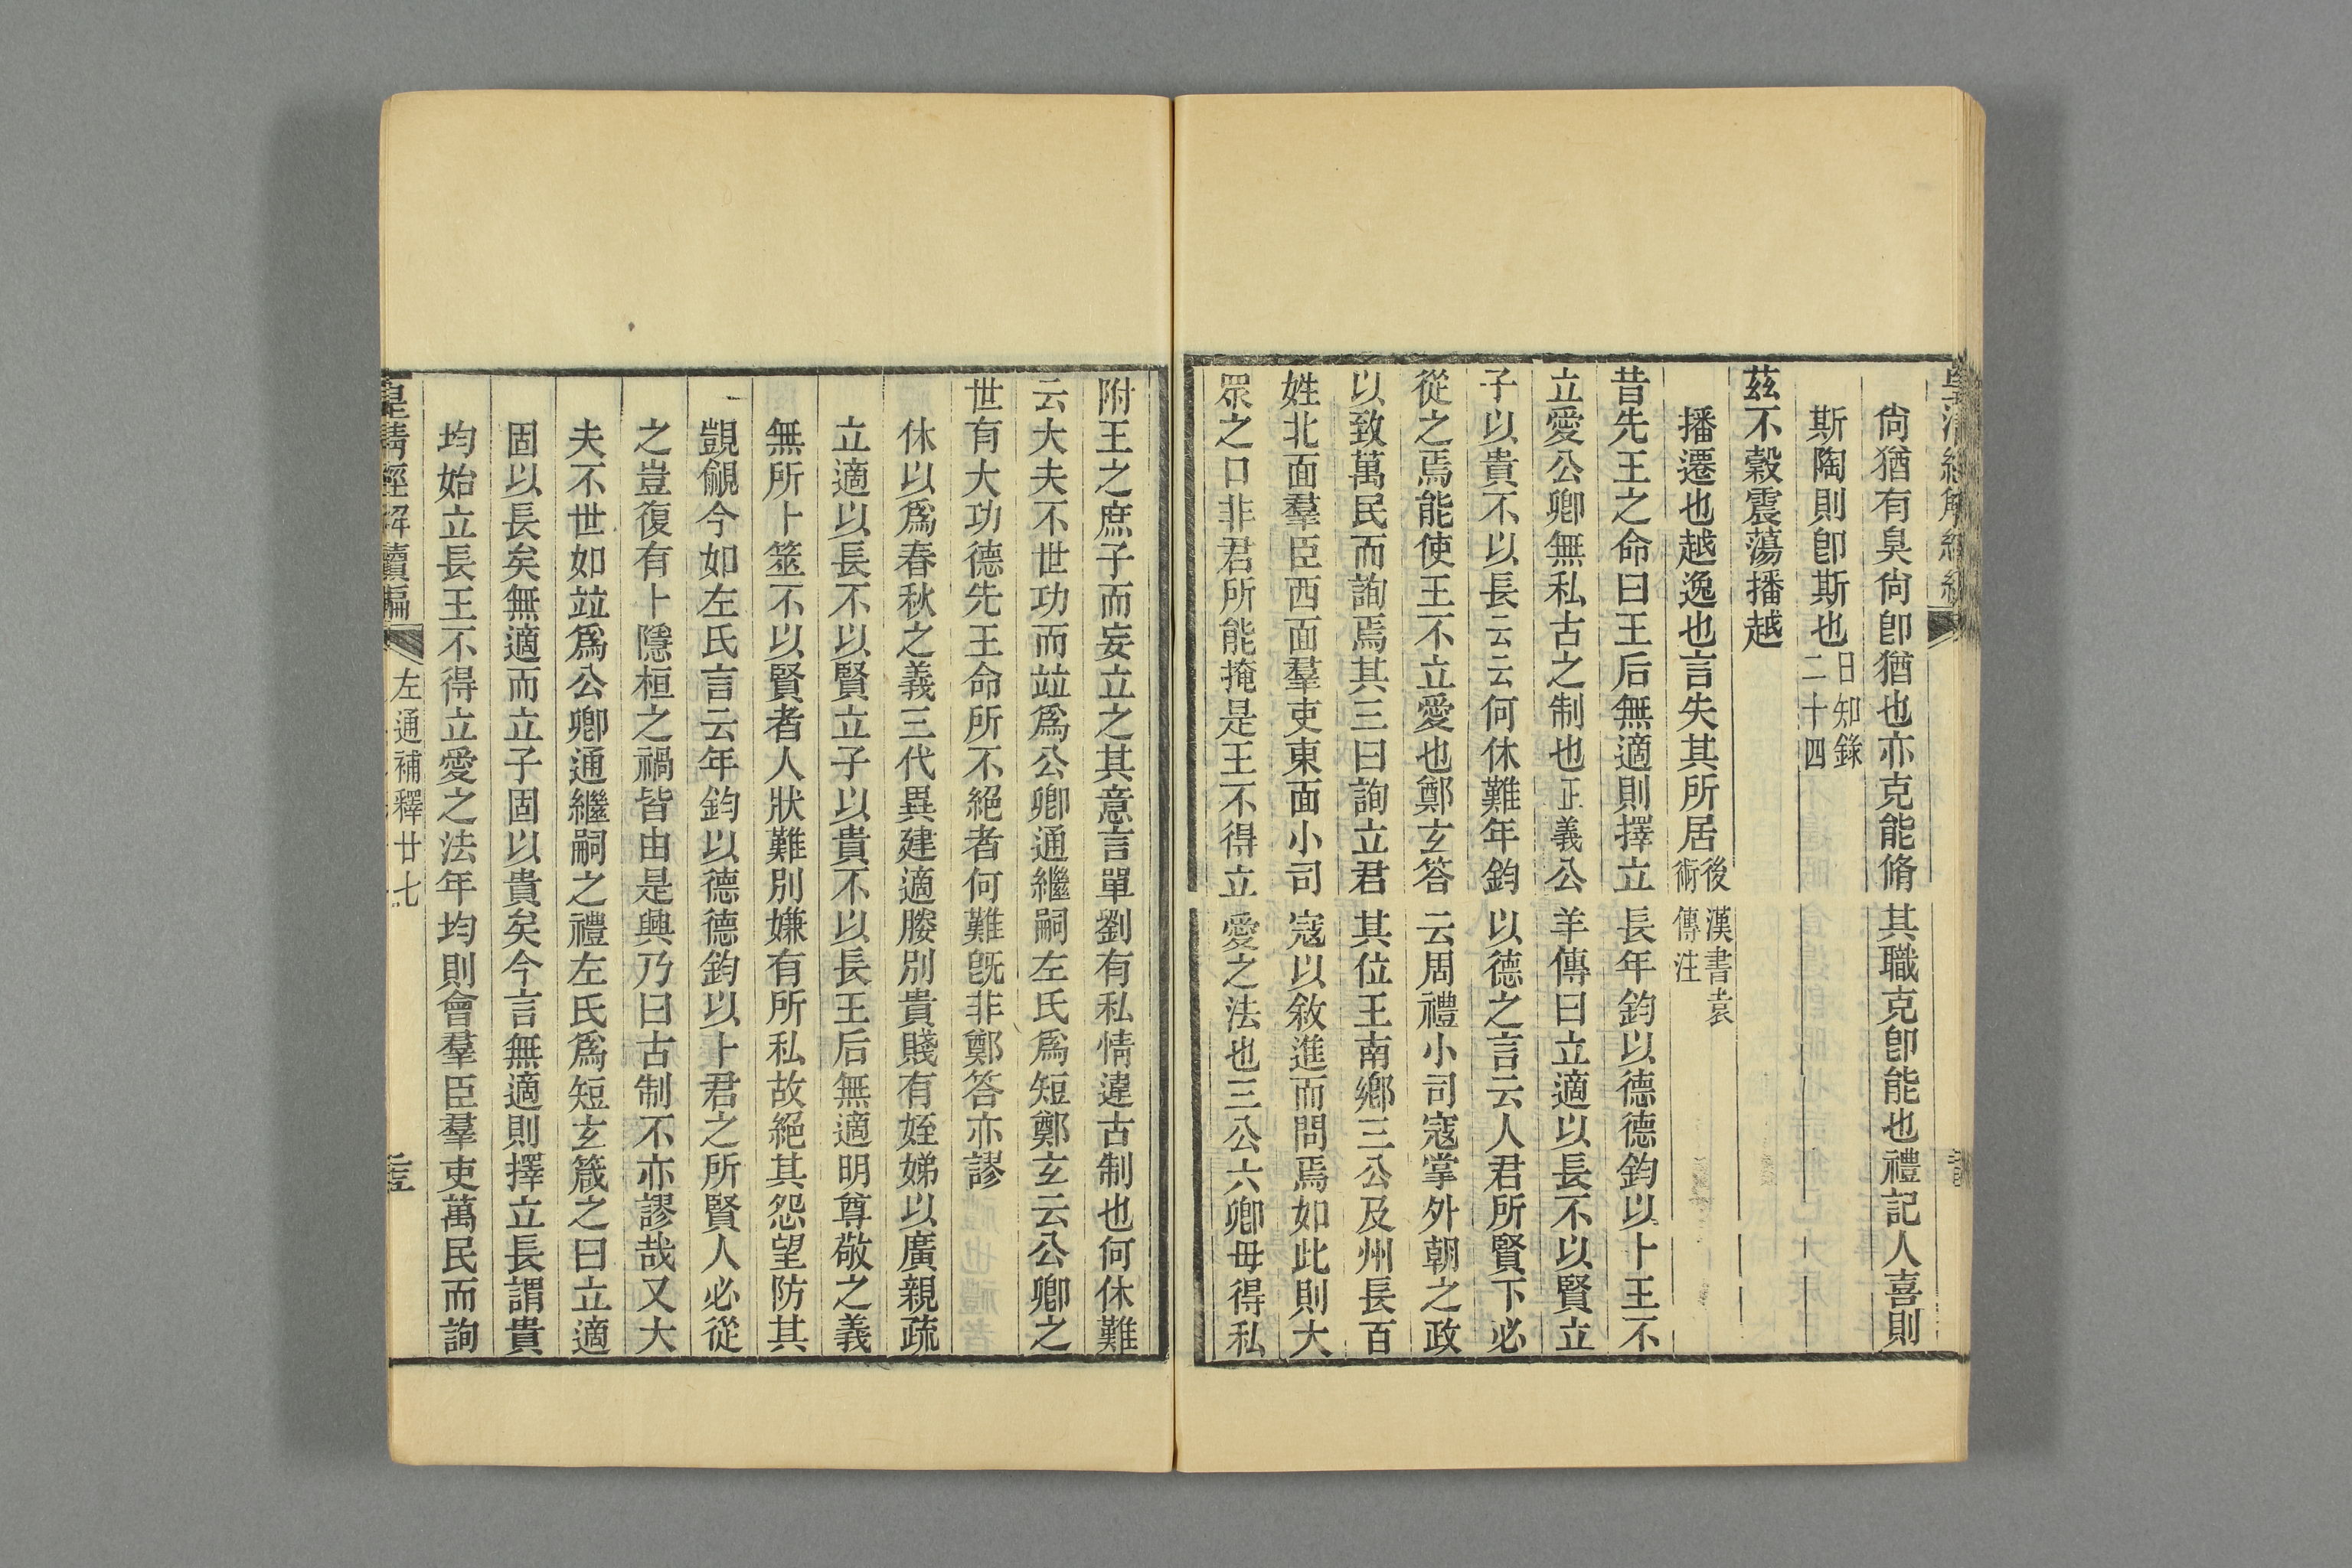 尙猶有臭尙卽猶也亦克能脩其職克卽能也禮記人喜則
斯陶則卽斯也日知錄二十四
茲不穀震蕩播越
播遷也越逸也言失其所居後漢書袁術傳注
昔先王之命曰王后無適則擇立長年鈞以德德鈞以卜王不
立愛公卿無私古之制也正義公羊傳曰立適以長不以賢立
子以貴不以長云云何休難年鈞以德之言云人君所賢下必
從之焉能使王不立愛也鄭玄答云周禮小司寇掌外朝之政
以致萬民而詢焉其三曰詢立君其位王南鄕三公及州長百
姓北面羣臣西面羣吏東面小司寇以敘進而問焉如此則大
眾之口非君所能掩是王不得立愛之法也三公六卿毋得私
附王之庶子而妄立之其意言單劉有私情違古制也何休難
云大夫不世功而竝爲公卿通繼嗣左氏爲短鄭玄云公卿之
世有大功德先王命所不絕者何難旣非鄭答亦謬
休以爲春秋之義三代異建適媵別貴賤有姪娣以廣親疏
立適以長不以賢立子以貴不以長王后無適明尊敬之義
無所卜筮不以賢者人狀難別嫌有所私故絕其怨望防其
覬覦今如左氏言云年鈞以德德鈞以卜君之所賢人必從
之豈復有卜隱桓之禍皆由是興乃曰古制不亦謬哉又大
夫不世如竝爲公卿通繼嗣之禮左氏爲短玄箴之曰立適
固以長矣無適而立子固以貴矣今言無適則擇立長謂貴
均始立長王不得立愛之法年均則會羣臣羣吏萬民而詢
皇淸經解續編 左通補釋廿七